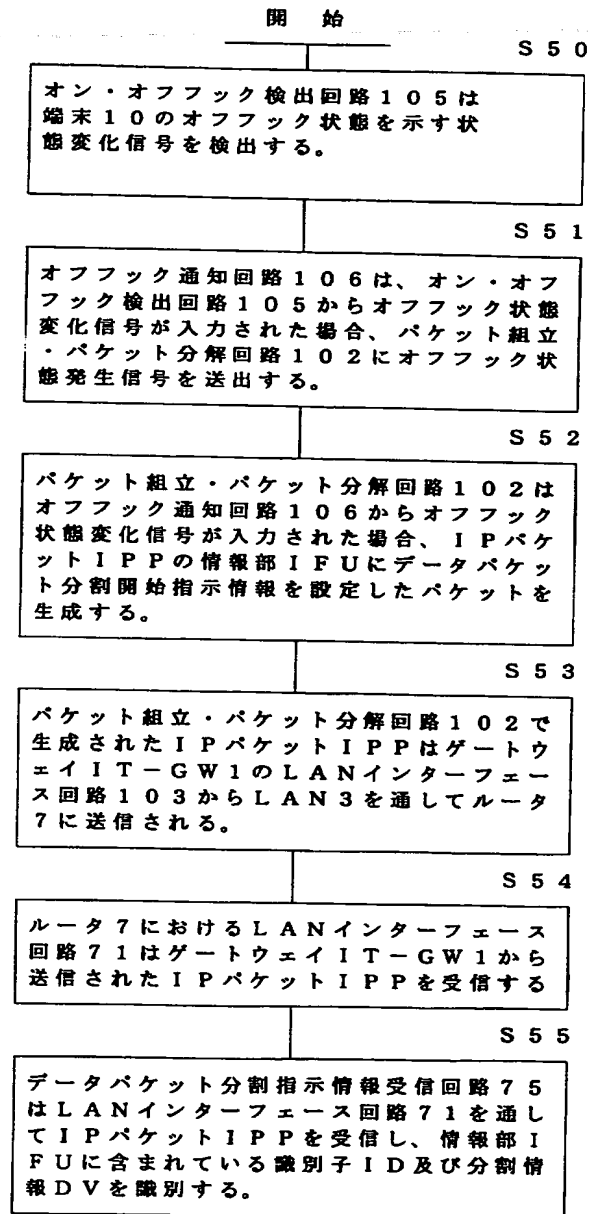 開 始
S50
オン・オフフック検出回路105は
端末10のオフフック状態を示す状
態変化信号を検出する。
S51
オフフック通知回路106は、オン・オフ
フック検出回路105からオフフック状態
変化信号が入力された場合、パケット組立
・パケット分解回路102にオフフック状
態発生信号を送出する。
S52
パケット組立・パケット分解回路102は
オフフック通知回路106からオフフック
状態変化信号が入力された場合、IPパケ
ットIPPの情報部IFUにデータパケッ
ト分割開始指示情報を設定したパケットを
生成する。
S53
パケット組立・パケット分解回路102で
生成されたIPパケットIPPはゲートウ
ェイIT-GW1のLANインターフェー
ス回路103からLAN3を通してルータ
7に送信される。
S54
ルータ7におけるLANインターフェース
回路71はゲートウェイIT-GW1から
送信されたIPパケットIPPを受信する
S55
データパケット分割指示情報受信回路75
はLANインターフェース回路71を通し
てIPパケットIPPを受信し、情報部I
FUに含まれている識別子ID及び分割情
報DVを識別する。